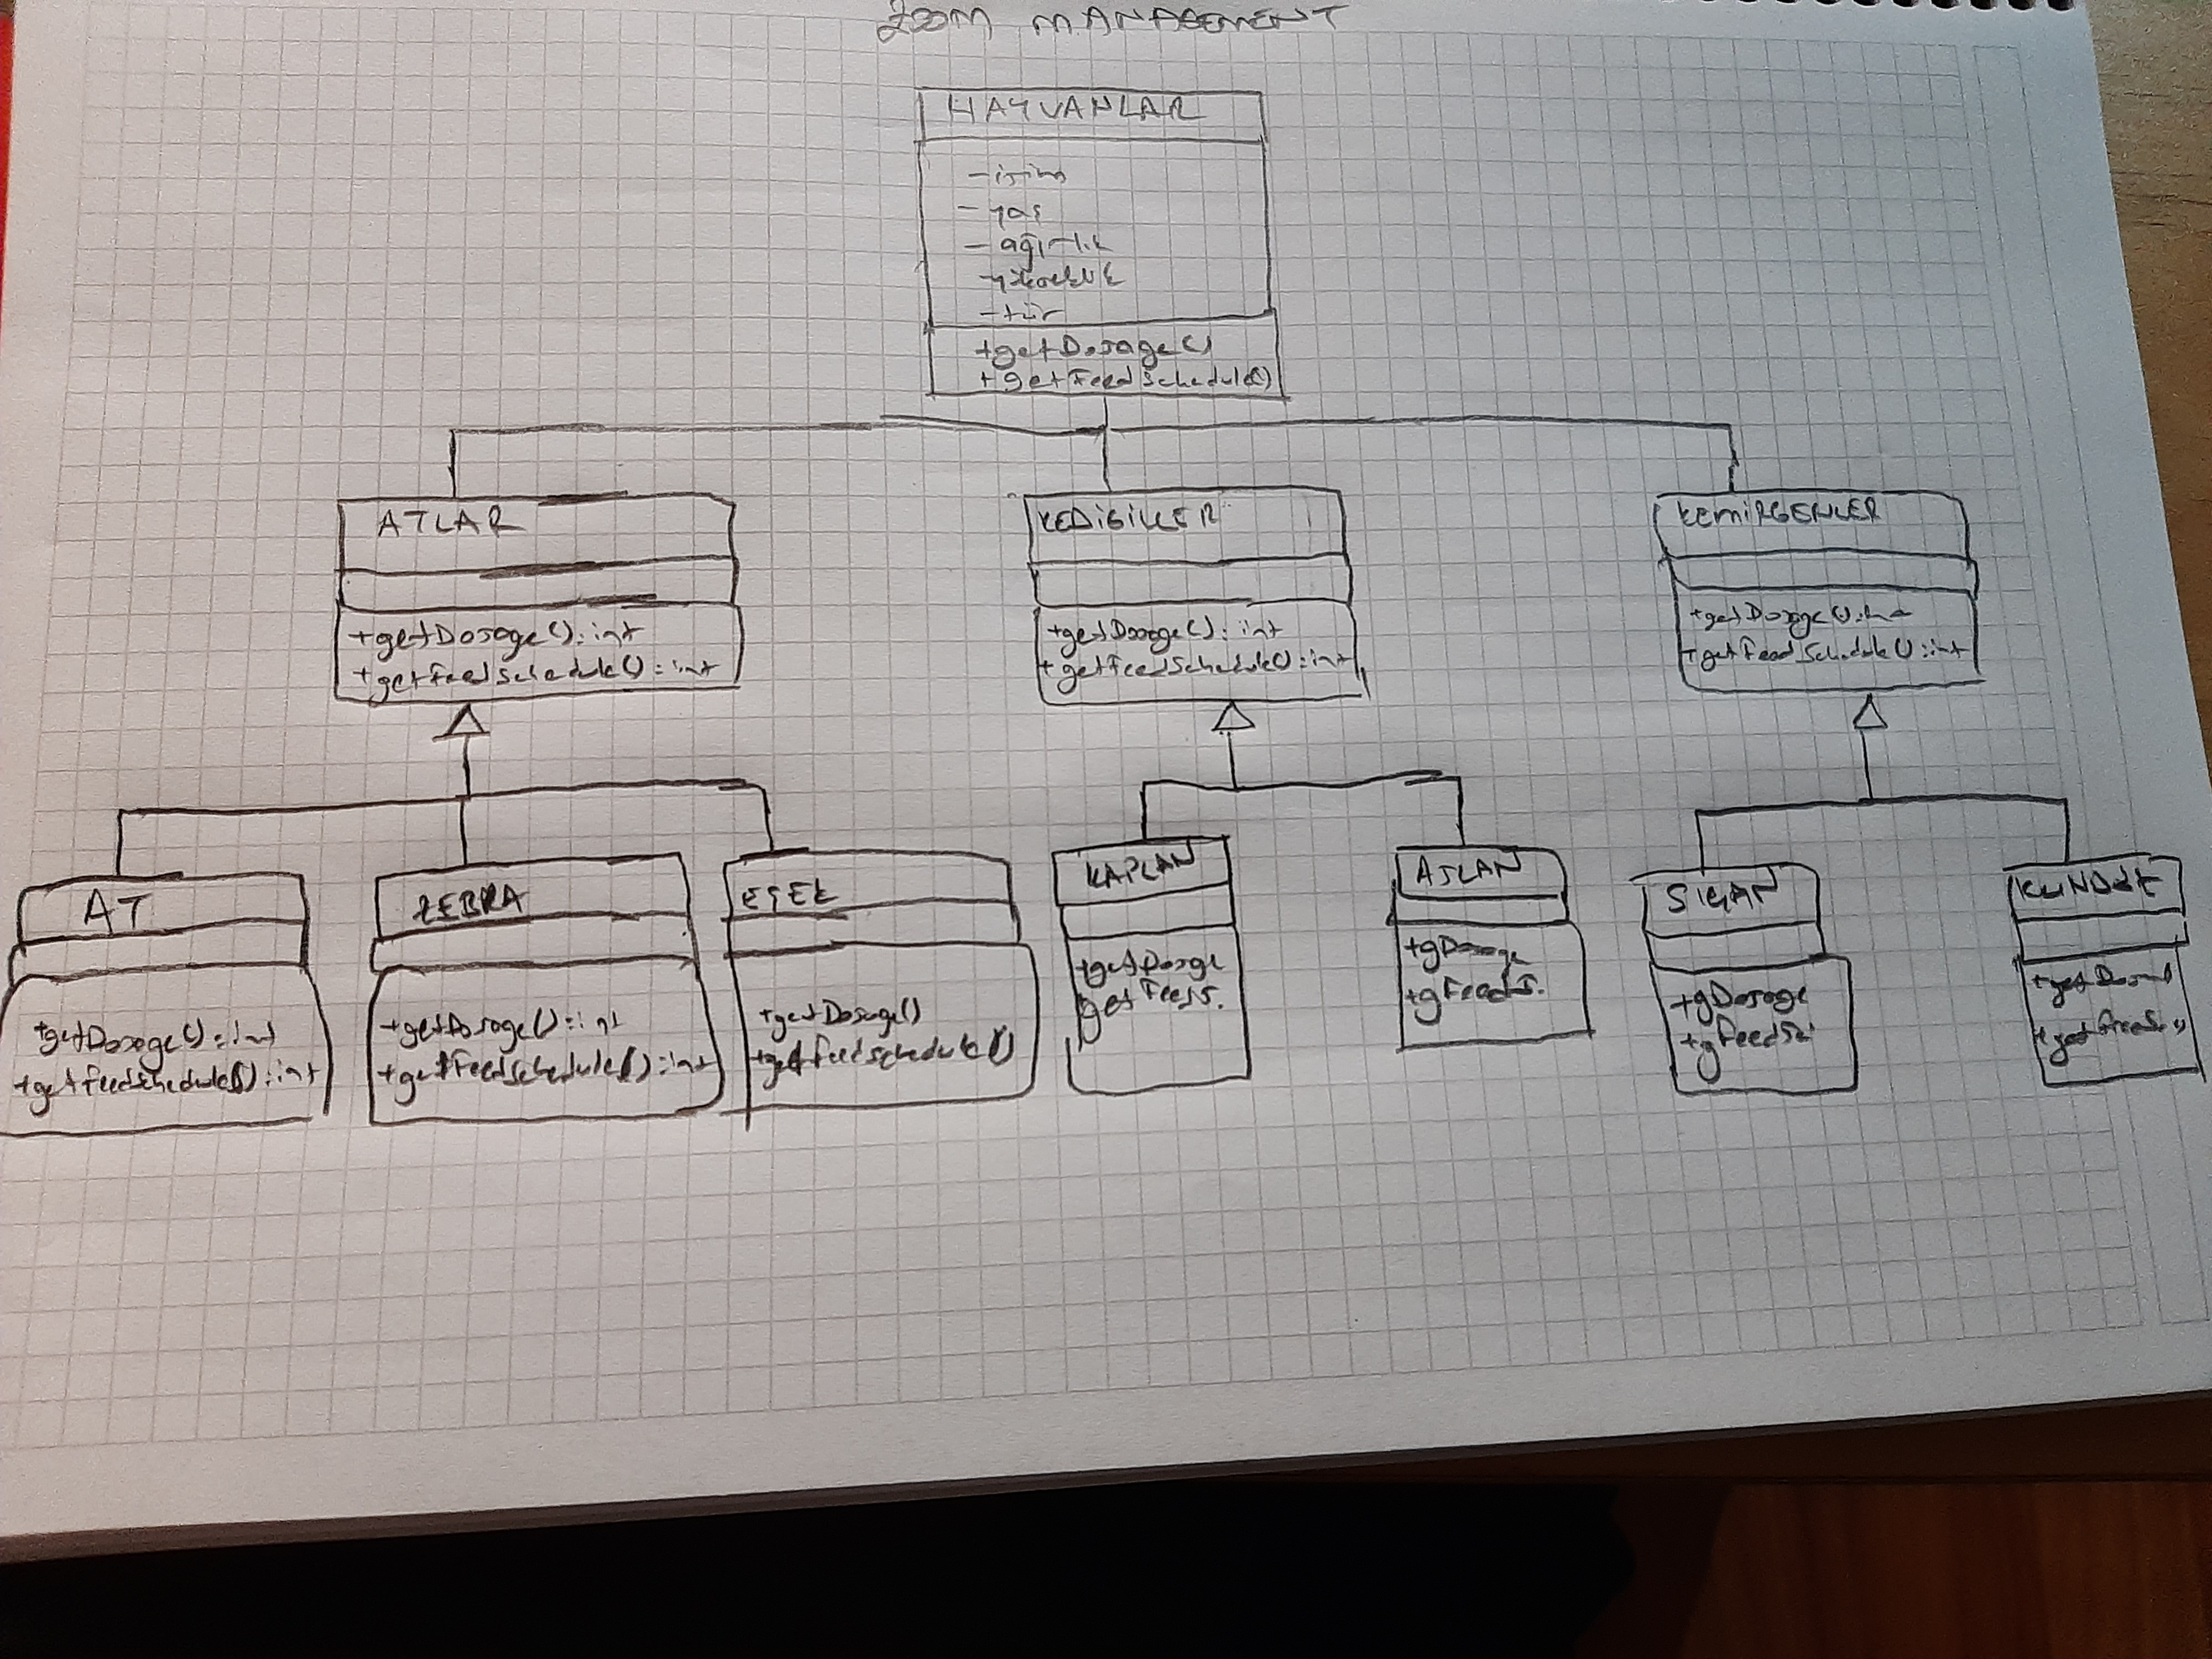 ZOOM MANAGEMENT
HAYVANLAR
- isim
- yaş
- ağırlık
- tür
+getDosage()
+getFeedSchedule()
ATLAR
+getDosage(): int
+getFeedSchedule(): int
KEDİGİLLER
+getDosage(): int
+getFeedSchedule(): int
KEMİRGENLER
+getDosage():
+getFeedSchedule(): int
AT
+getDosage(): int
+getFeedSchedule(): int
ZEBRA
+getDosage(): int
+getFeedSchedule(): int
EŞEK
+getDosage()
+getFeedschedule()
KAPLAN
+getDosge
getFeedS.
ASLAN
+gDosage
+gFeedS.
SIÇAN
+gDosage
+gFeedSc
KUNDUZ